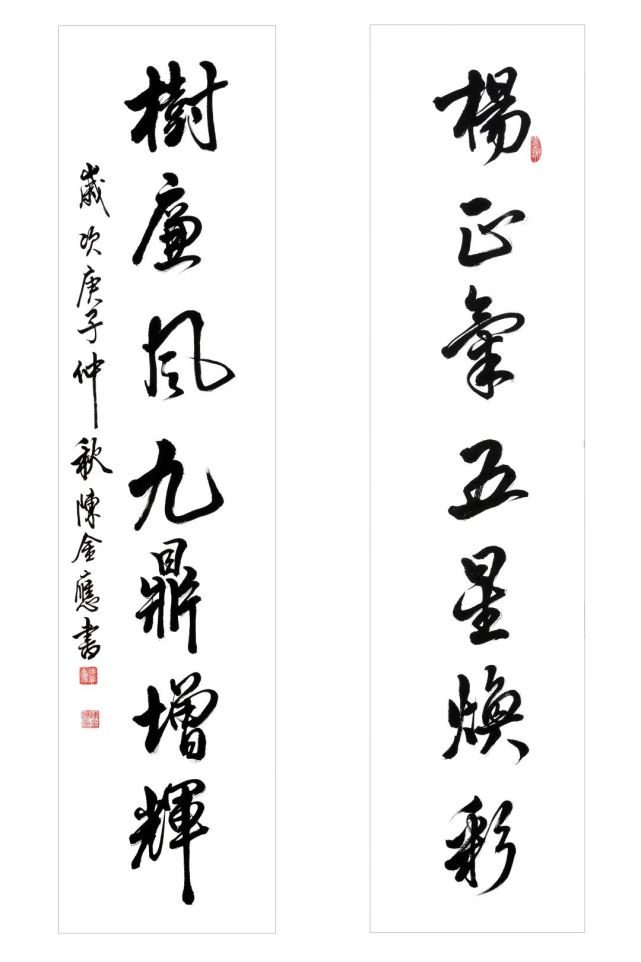 楊正氣五星煥彩
樹廉風九鼎增輝
歲次庚子仲秋陳金應書